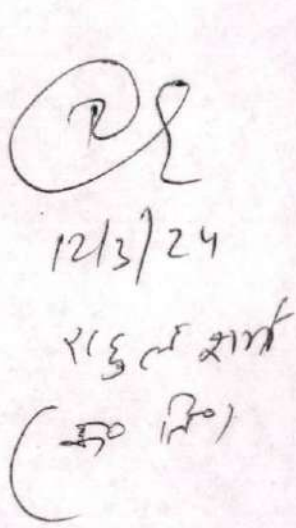 12/3/24
राहुल शर्मा
(क० लि०)